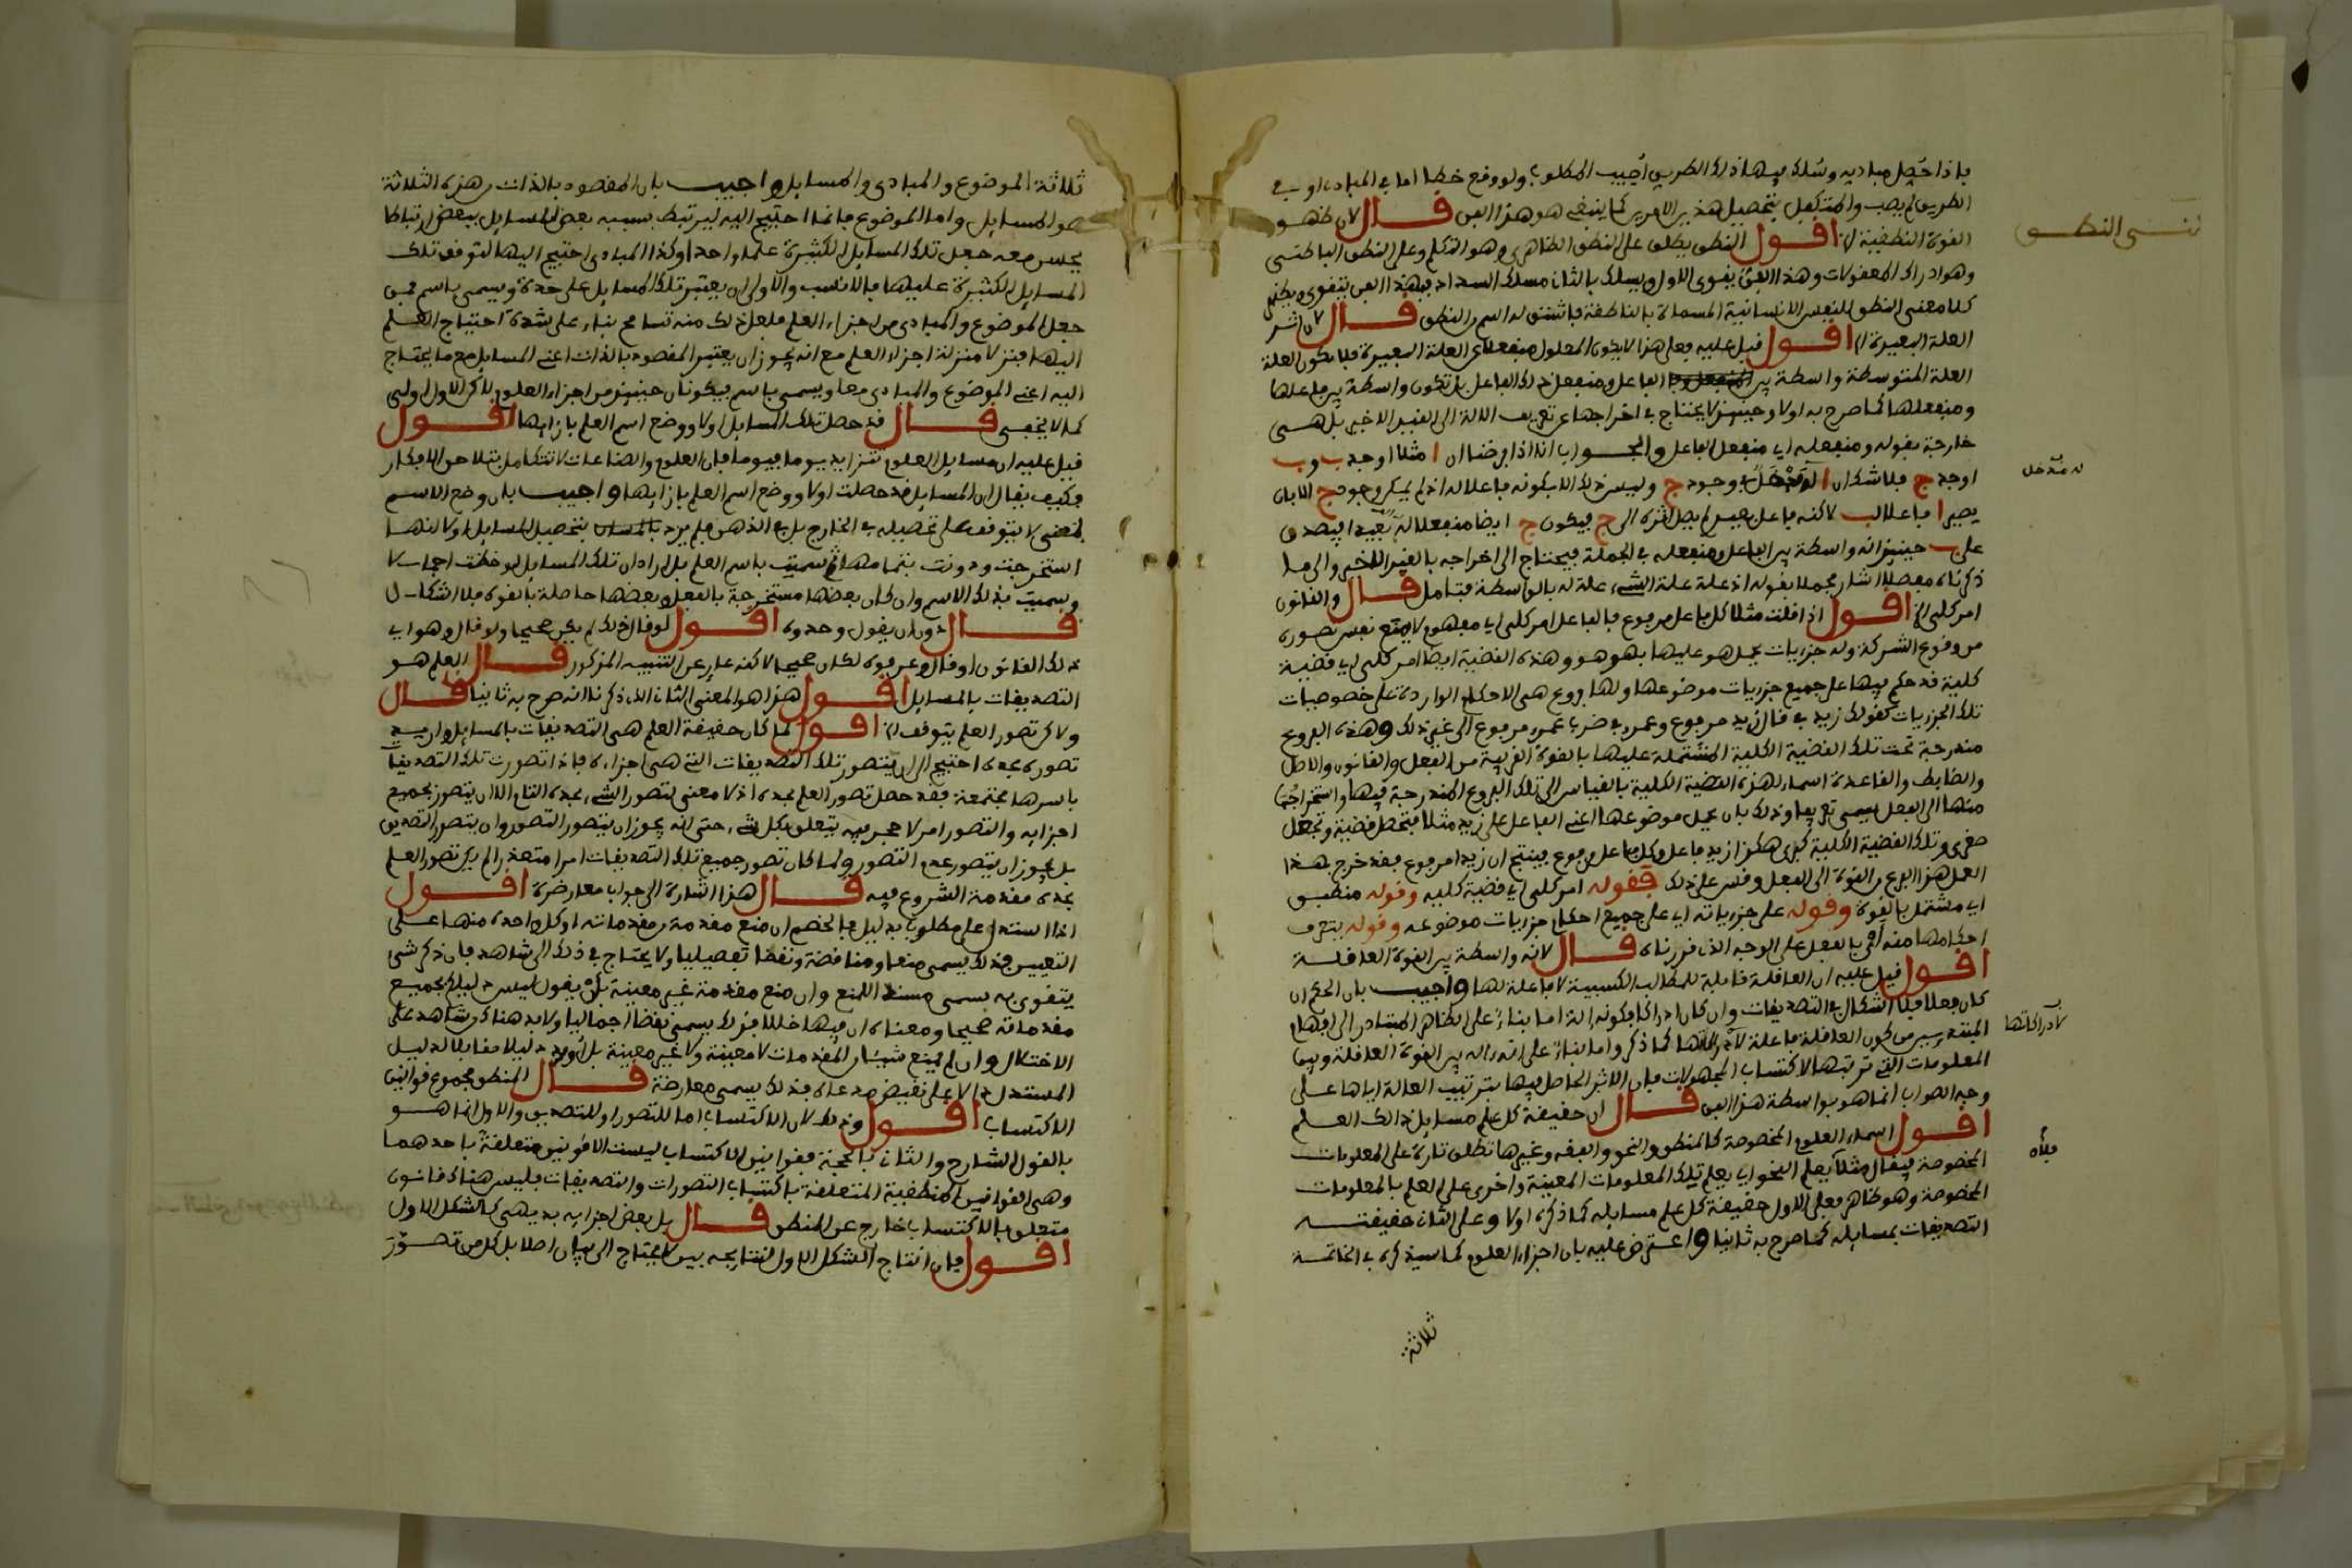 فاذا حصل مباديه وسلك فيها ذلك الطريق أصيب المطلوب ولو وقع خطا اما في المبادى او في
الطريق لم يصب والمتكفل بتحصيل هذين الامرين كما ينبغى هو هذا الفن قال لان ظهور
القوة النطقية الخ اقول النطق يطلق على النطق الظاهرى وهو التكلم وعلى النطق الباطنى
وهو ادراك المعقولات وهذا الفن يقوى الاول ويسلك بالثانى مسلك السداد فبهذا الفن يتقوى ويظهر
كلا معنى النطق للنفس الانسانية المسماة بالناطقة فاشتق له اسم من النطق قال لان اثر
العلة البعيدة الخ اقول قيل عليه فعلى هذا لا يكون المعلول منفعلا عن العلة البعيدة فلا تكون العلة
العلة المتوسطة واسطة بين الفاعل ومنفعل ذلك الفاعل بل تكون واسطة بين فاعلها
ومنفعلها كما صرح به اولا وحينئذ لا يحتاج في اخراجها عن تعريف الالة الى القيد الاخير بل هى
خارجة بقوله ومنفعله اى منفعل الفاعل والجواب انا اذا فرضنا ان ا مثلا اوجد ب و ب
اوجد ج فلا شك ان ا له مدخل في وجود ج وليس ذلك الا بكونه فاعلا له اذ لم يكن وجود ج الا بان
يصير ا فاعلا لب لاكنه فاعل بعيد لم يصل اثره الى ج فيكون ج ايضا منفعلا له بعيدا فيصدق
على ب حينئذ انه واسطة بين الفاعل ومنفعله في الجملة فيحتاج الى اخراجه بالقيد الاخير والى ما
ذكرناه مفصلا اشار مجملا بقوله اذ علة علة الشىء علة له بالواسطة فتامل قال والقانون
امر كلى الخ اقول اذا قلت مثلا كل فاعل مرفوع فالفاعل امر كلى اى مفهوم لا يمنع نفس تصوره
من وقوع الشركة وله جزئيات يحمل هو عليها بهو هو وهذه القضية ايضا امر كلى اى قضية
كلية قد حكم فيها على جميع جزريات موضوعها ولها فروع هى الاحكام الواردة على خصوصيات
تلك الجزريات كقولك زيد في قال زيد مرفوع وعمرو في ضرب عمرو مرفوع الى غير ذلك وهذه الفروع
مندرجة تحت تلك القضية الكلية المشتملة عليها بالقوة القريبة من الفعل والقانون والاصل
والضابط والقاعدة اسماء لهذه القضية الكلية بالقياس الى تلك الفروع المندرجة فيها واستخراجها
منها الى الفعل يسمى تفريعا وذلك بان يحمل موضوعها اعنى الفاعل على زيد مثلا فتحصل قضية وتجعل
صغرى وتلك القضية الكلية كبرى هكذا زيد فاعل وكل فاعل مرفوع فينتج ان زيدا مرفوع فقد خرج بهذا
العمل هذا الفرع من القوة الى الفعل وقس على ذلك فقوله امر كلى اى قضية كلية وقوله منطبق
اى مشتمل بالقوة وقوله على جزرياته اى على جميع احكام جزريات موضوعه وقوله يتعرف
احكامها منه اى بالفعل على الوجه الذى قررناه قال لانه واسطة بين القوة العاقلة
اقول قيل عليه ان العاقلة قابلة للمطالب الكسبية لا فاعلة لها واجيب بان الحكم ان
كان فعلا فلا اشكال في التصديقات وان كان ادراكا فكونه الة اما بناء على الظاهر المتبادر الى افهام
المبتدءين من كون العاقلة فاعلة لادراكاتها كما ذكر واما بناء على انه الة بين القوة العاقلة وبين
المعلومات التى ترتبها لاكتساب المجهولات فان الاثر الحاصل فيها بترتيب العاقلة اياها على
وجه الصواب انما هو بواسطة هذا الفن قال ان حقيقة كل علم مسايل ذالك العلم
اقول اسماء العلوم المخصوصة كالمنطق والنحو والفقه وغيرها تطلق تارة على المعلومات
المخصوصة فيقال مثلا يعلم النحو اى يعلم تلك المعلومات المعينة واخرى على العلم بالمعلومات
المخصوصة وهو ظاهر فعلى الاول حقيقة كل علم مسايله كما ذكره اولا وعلى الثانى حقيقته
التصديقات بمسايله كما صرح به ثانيا واعترض عليه بان اجزاء العلوم كما سيذكره في الخاتمة
ثلاثة
له مدخل
لادراكاتها
ثلاثة الموضوع والمبادى والمسايل واجيب بان المقصود بالذات من هذه الثلاثة
هو المسايل واما الموضوع فانما احتيج اليه ليرتبط بسببه بعض المسايل ببعض ارتباطا
يحسن معه جعل تلك المسايل الكثيرة علما واحدا وكذا المبادى احتيج اليها لتوقف تلك
المسايل الكثيرة عليها فالانسب والاولى ان يعتبر تلك المسايل على حدة ويسمى باسم فمن
جعل الموضوع والمبادى من اجزاء العلم فلعل ذلك منه تسامح بناء على شدة احتياج العلم
اليهما فنزلا منزلة اجزاء العلم مع انه يجوز ان يعتبر المقصود بالذات اعنى المسايل مع ما يحتاج
اليه اعنى الموضوع والمبادى معا ويسمى باسم فيكونان حينئذ من اجزاء العلوم لاكن الاول اولى
كما لا يخفى قال قد حصل تلك المسايل اولا ووضع اسم العلم بازايها اقول
قيل عليه ان مسايل العلوم تتزايد يوما فيوما فان العلوم والصناعات تتكامل بتلاحق الافكار
فكيف يقال ان المسايل قد حصلت اولا ووضع اسم العلم بازايها واجيب بان وضع الاسم
لمعنى لا يتوقف على تحصيله في الخارج بل في الذهن فلم يرد بتحصيل المسايل اولا انها
استخرجت ودونت بتمامها ثم سميت باسم العلم بل اراد ان تلك المسايل لوحظت اجمالا
وسميت بذلك الاسم وان كان بعضها مستخرجة بالفعل وبعضها حاصلة بالقوة فلا اشكال
قال دون ان يقول وحدوه اقول لو قال ذلك لم يكن صحيحا ولو قال وهو اى
ذلك القانون او قال وعرفوه لكان صحيحا لاكنه عار عن التنبيه المذكور قال العلم هو
التصديقات بالمسايل اقول هذا هو المعنى الثانى الذى ذكرنا انه صرح به ثانيا قال
ولاكن تصور العلم يتوقف الخ اقول لما كان حقيقة العلم هى التصديقات بالمسايل واريد
تصوره بحده احتيج الى ان يتصور تلك التصديقات التى هى اجزاءه فاذا تصورت تلك التصديقات
باسرها مجتمعة فقد حصل تصور العلم بحده اذ لا معنى لتصور الشىء بحده التام الا ان يتصور بجميع
اجزايه والتصور امر لا حجر فيه يتعلق بكل شىء حتى انه يجوز ان يتصور التصور وان يتصور التصديق
بل يجوز ان يتصور عدم التصور ولما كان تصور جميع تلك التصديقات امرا متعذرا لم يكن تصور العلم
بحده مقدمة الشروع فيه قال هذا اشارة الى جواب معارضة اقول
اذا استدل على مطلوب بدليل فالخصم ان منع مقدمة من مقدماته او كل واحدة منها على
التعيين فذلك يسمى منعا ومناقضة ونقضا تفصيليا ولا يحتاج في ذلك الى شاهد فان ذكر شىء
يتقوى به يسمى مسندا للمنع وان منع مقدمة غير معينة بان يقول ليس دليلك بجميع
مقدماته صحيحا ومعناه ان فيها خللا فذلك يسمى نقضا اجماليا ولا بد هناك من شاهد على
الاختلال وان لم يمنع شيئا من المقدمات لا معينة ولا غير معينة بل اورد دليلا مقابلا لدليل
المستدل دالا على نقيض مدعاه فذلك يسمى معارضة قال المنطق مجموع قوانين
الاكتساب اقول وذلك لان الاكتساب اما للتصور او للتصديق والاول انما هو
بالقول الشارح والثانى بالحجة فقوانين الاكتساب ليست الا قوانين متعلقة باحدهما
وهى القوانين المنطقية المتعلقة باكتساب التصورات والتصديقات فليس هناك قانون
متعلق بالاكتساب خارج عن المنطق قال بل بعض اجزايه بديهى كالشكل الاول
اقول فان انتاج الشكل الاول لنتايجه بين لا يحتاج الى بيان اصلا بل كل من تصور